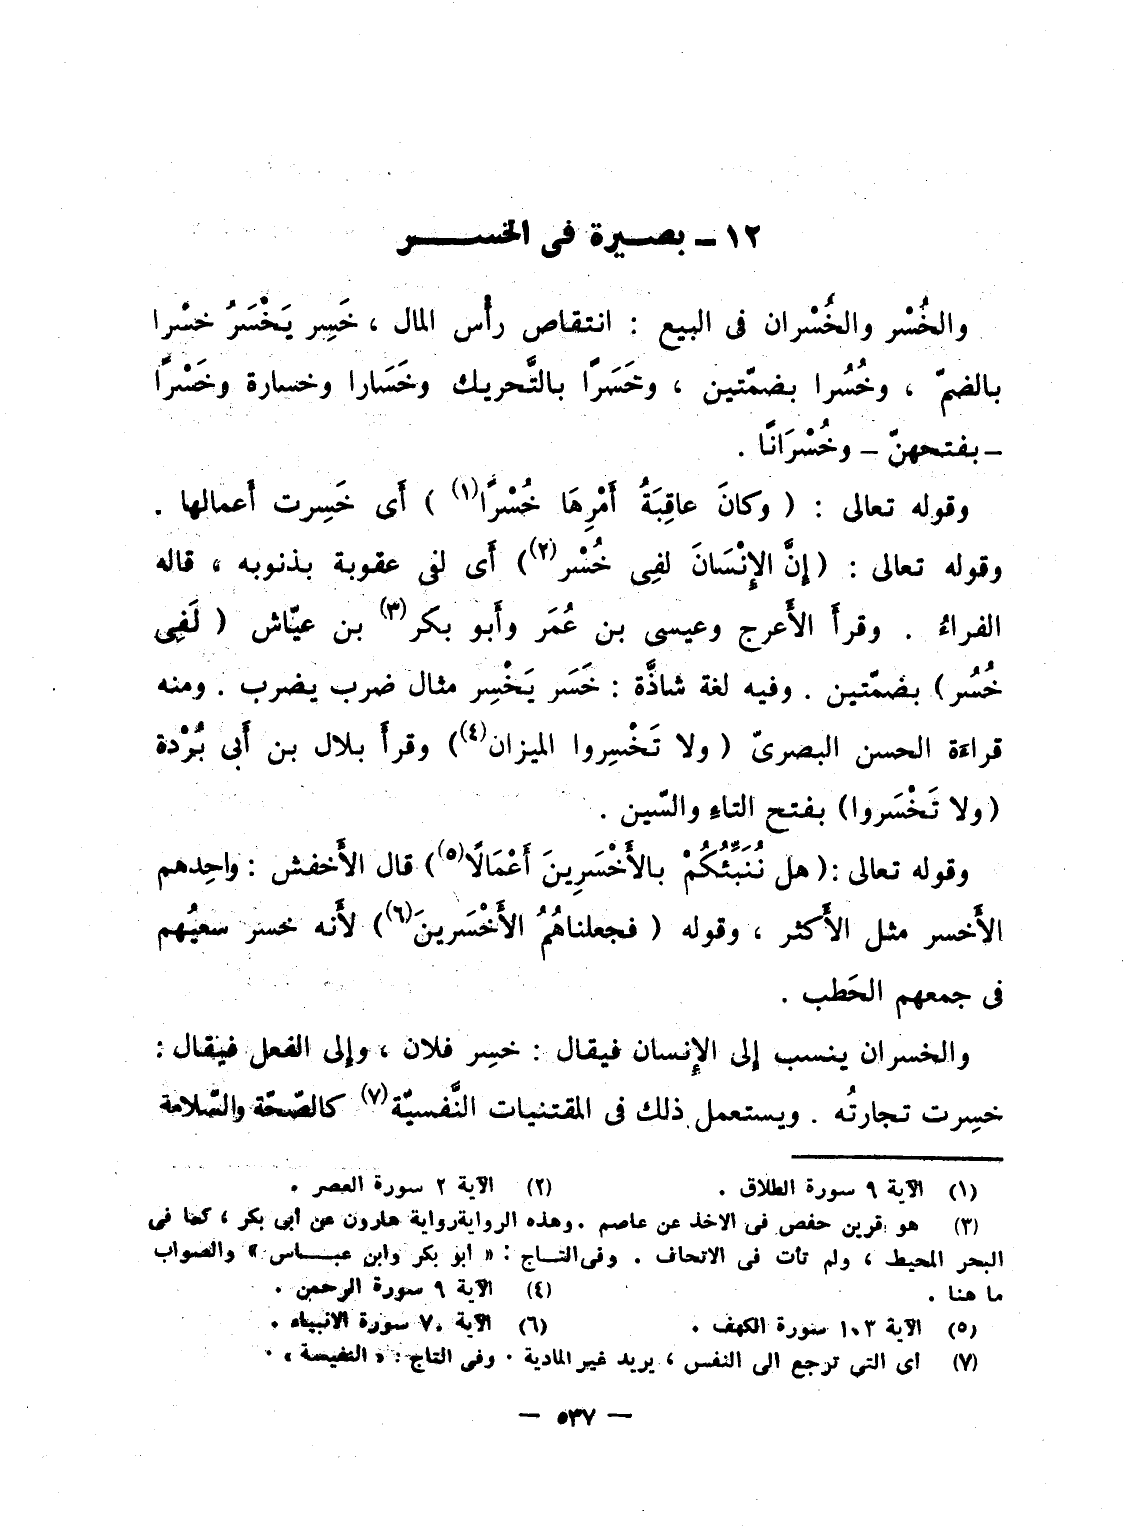 ١٢ ـ بصيرة فى الخسر
والخُسْر والخُسْران فى البيع : انتقاص رأْس المال ، خَسِر يَخْسَرُ خسْرا
بالضمّ ، وخُسُرا بضمّتين ، وخَسَرًا بالتَّحريك وخَسَارا وخسارة وخَسْرًا
ـ بفتحهنّ ـ وخُسْرَانًا .
وقوله تعالى : ( وكانَ عاقِبَةُ أَمْرِهَا خُسْرًا(١) ) أَى خَسِرت أَعمالها .
وقوله تعالى : ( إِنَّ الإِنْسَانَ لفِى خُسْر(٢)) أَى لفى عقوبة بذنوبه ، قاله
الفراءُ . وقرأَ الأَعرج وعيسى بن عُمَر وأَبو بكر(٣) بن عيّاش ( لَفِى
خُسُر) بضمّتين . وفيه لغة شاذَّة : خَسَر يَخْسِر مثال ضرب يضرب . ومنه
قراءَة الحسن البصرىّ ( ولا تَخْسِروا الميزان(٤)) وقرأَ بلال بن أَبى بُرْدة
(ولا تَخْسَروا) بفتح التاءِ والسّين .
وقوله تعالى :( هل نُنَبِّئُكُمْ بالأَخْسَرِينَ أَعْمَالًا(٥)) قال الأَخفش : واحِدهم
الأَخسر مثل الأَكثر ، وقوله ( فجعلناهُمُ الأَخْسَرينَ(٦)) لأَنه خسر سعيُهم
فى جمعهم الحَطب .
والخسران ينسب إلى الإِنسان فيقال : خسِر فلان ، وإِلى الفعل فيقال :
خسِرت تجارتُه . ويستعمل ذلك فى المقتنيات النَّفسيّة(٧) كالصّحّة والسّلامة
(١) الآية ٩ سورة الطلاق . (٢) الآية ٢ سورة العصر .
(٣) هو قرين حفص فى الاخذ عن عاصم . وهذه الرواية رواية هارون عن أبى بكر ، كما فى
البحر المحيط ، ولم تأت فى الاتحاف . وفى التاج : « ابو بكر وابن عباس » والصواب
ما هنا . (٤) الآية ٩ سورة الرحمن .
(٥) الآية ١٠٣ سورة الكهف . (٦) الآية ٧٠ سورة الانبياء .
(٧) اى التي ترجع الى النفس ، يريد غير المادية . وفى التاج : « النفيسة » .
— ٥٣٧ —